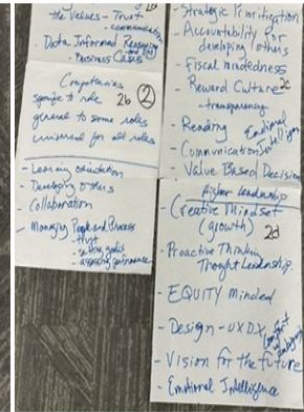 the Values - Trust
- communication
- Data Informed Reasoning
- Business Cases
Competencies
specific to role 2b ②
general to some roles
universal for all roles
- Learning orientation
- Developing others
- Collaboration
- Managing People and Process
- setting goals
- assessing performance
- Strategic Prioritization
- Accountability for
developing others
- Fiscal mindedness
- Reward Culture 2c
- transparency
- Reading Emotional
- Communication Intelligence
- Value Based Decision
higher leadership
- Creative Mindset
(growth) 2d
- Proactive Thinking
Thought Leadership
- EQUITY Minded
- Design - UX DX
- Vision for the future
- Emotional Intelligence